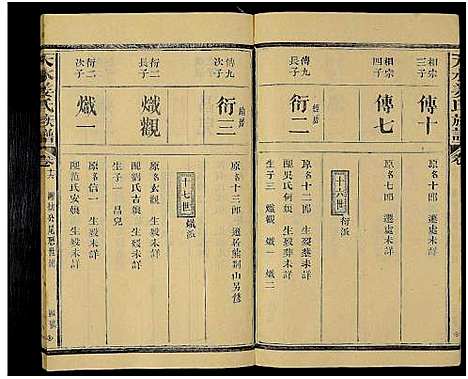 天水姜氏族譜
相宗三子
傳十
原名十郎 遷處未詳
相宗四子
傳七
原名七郎 遷處未詳
十六世 衍派
傳九長子
衍二
原名十二郎 生殁葬未詳
配吳氏何娘 生殁葬未詳
生子三 熾觀 熾一 熾二
傳九次子
衍三
原名十三郎 遷
十七世 熾派
衍二長子
熾觀
原名玄觀 生殁未詳
配劉氏吉娘 生殁未詳
生子一 昌兒
衍二次子
熾一
原名信一 生殁未詳
配范氏安娘 生殁未詳
天水姜氏族譜